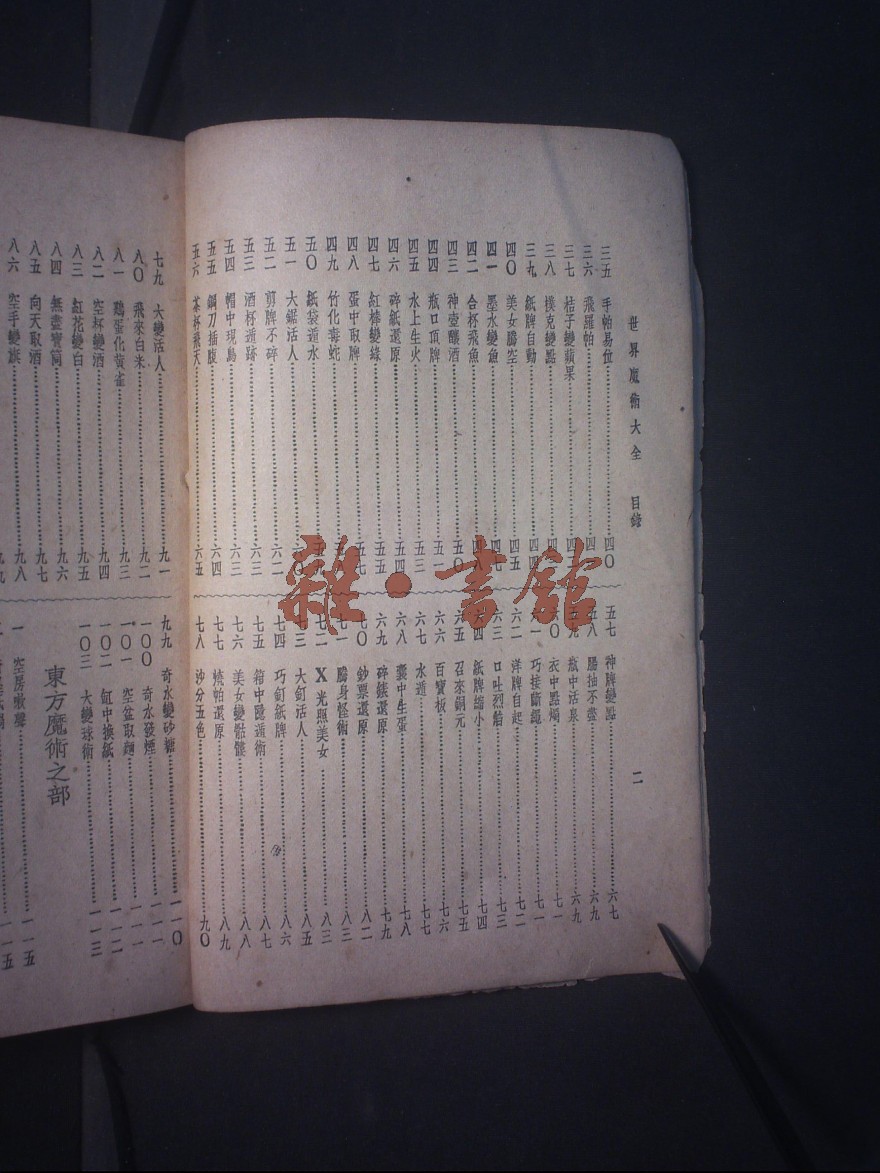 世界魔術大全 目錄
二
三五 手帕易位 四〇
三六 飛羅帕
三七 桔子變蘋果
三八 撲克變點
三九 紙牌自動
四〇 美女騰空 四五
四一 墨水變魚
四二 合杯飛魚
四三 神壺釀酒 五〇
四四 瓶口頂牌 五一
四五 水上生火 五三
四六 碎紙還原 五四
四七 紅棒變綠 五五
四八 蛋中取牌
四九 竹化毒蛇
五〇 紙袋遁水
五一 大鋸活人
五二 剪牌不碎 六二
五三 酒杯遁跡 六三
五四 帽中現鳥 六三
五五 鋼刀插腹 六四
五六 茶杯飛天 六五
五七 神牌變點 六七
五八 腸抽不盡 六九
五九 瓶中活泉 六九
六〇 衣中點燭 七一
六一 巧接斷繩 七一
六二 洋牌自起 七二
六三 口吐烈焰 七三
六四 紙牌縮小 七四
六五 召來銅元 七五
六六 百寶板 七六
六七 水遁 七七
六八 囊中生蛋 七八
六九 碎錶還原 七九
七〇 鈔票還原 八二
七一 騰身怪術 八三
七二 X光照美女 八三
七三 大釘活人 八五
七四 巧釘紙牌 八六
七五 箱中隱遁術 八七
七六 美女變骷髏 八八
七七 燒帕還原 八九
七八 沙分五色 九〇
七九 大變活人 九一
八〇 飛來白米 九二
八一 鷄蛋化黃雀 九三
八二 空杯變酒 九四
八三 紅花變白 九五
八四 無盡寶筒 九六
八五 向天取酒 九七
八六 空手變旗 九八
九九
九九 奇水變砂糖 一一〇
一〇〇 奇水發煙 一一一
一〇一 空盆取麵 一一一
一〇二 缸中換紙 一一二
一〇三 大變球術 一一三
東方魔術之部
一 空房嗷聲 一一五
一一五
雜·書館